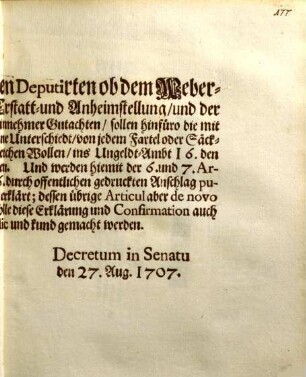 177.
en Deputirten ob dem Weber-
Erstatt- und Anheimstellung/ und der
innehmer Gutachten/ sollen hinfüro die mit
ne Unterschiedt/ von jedem Fartel oder Säck-
eichen Wollen/ ins Ungeldt-Ambt 16. den
en. Und werden hiemit der 6. und 7. Ar-
5. durch offentlichen gedruckten Anschlag pu-
erklärt; dessen übrige Articul aber de novo
olle diese Erklärung und Confirmation auch
lic und kund gemacht werden.
Decretum in Senatu
den 27. Aug. 1707.